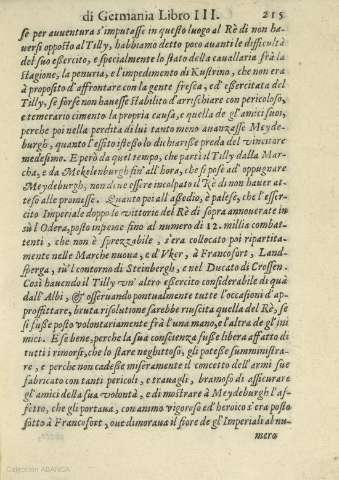 di Germania Libro III. 215
se per auuentura s'imputasse in questo luogo al Rè di non ha-
uersi opposto al Tilly, habbiamo detto poco auanti le difficultà
del suo essercito, e specialmente lo stato della cauallaria frà la
stagione, la penuria, e l'impedimento di Kustrino, che non era
à proposito d'affrontare con la gente fresca, ed' essercitata del
Tilly, se forse non hauesse stabilito d'arrischiare con pericoloso,
e temerario cimento la propria causa, e quella de gl'amici suoi,
perche poi nella perdita di lui tanto meno auanzasse Meyde-
burgh, quanto l'essito istesso lo dichiarisse preda del vincitore
medesimo. E però da quel tempo, che partì il Tilly dalla Mar-
cha, e da Mekelenburgh sin' all'hora, che si pose ad' oppugnare
Meydeburgh, non deue essere incolpato il Rè di non hauer at-
teso alle promesse. Quanto poi all'assedio, è palese, che l'esser-
cito Imperiale doppo le vittorie del Rè di sopra annouerate in
sù l'Odera, posto insieme sino al numero di 12. millia combat-
tenti, che non è sprezzabile, s'era collocato poi ripartita-
mente nelle Marche nuoua, e d' Vker, à Francofort, Land-
sperga, sù'l contorno di Steinbergh, e nel Ducato di Crossen.
Così hauendo il Tilly vn' altro essercito considerabile di quà
dall'Albi, & osseruando pontualmente tutte l'occasioni d'ap-
profittare, brutta risolutione sarebbe riuscita quella del Rè, se
si fusse posto volontariamente frà l'una mano, e l'altra de gl'ini-
mici. E se bene, perche la sua conscienza fusse libera affatto di
tutti i rimorsi, che lo stare neghittoso, gli potesse sumministra-
re, e perche non cadesse miseramente il concetto dell'armi sue
fabricato con tanti pericoli, e trauagli, bramoso di assicurare
gl'amici della sua volontà, e di mostrare à Meydeburgh l'af-
fetto, che gli portaua, con animo vigoroso ed' heroico s'era posto
sotto à Francofort, oue dimoraua il fiore de gl'Imperiali al nu-
mero
Colección ABANCA